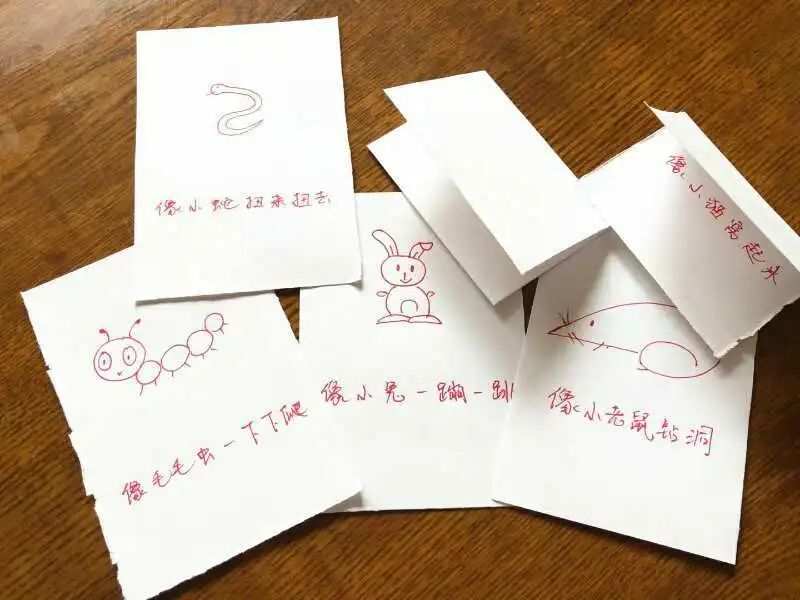 像小蛇扭来扭去
像小窝起来
像毛毛虫一下下爬
像小兔一蹦一跳
像小老鼠钻洞